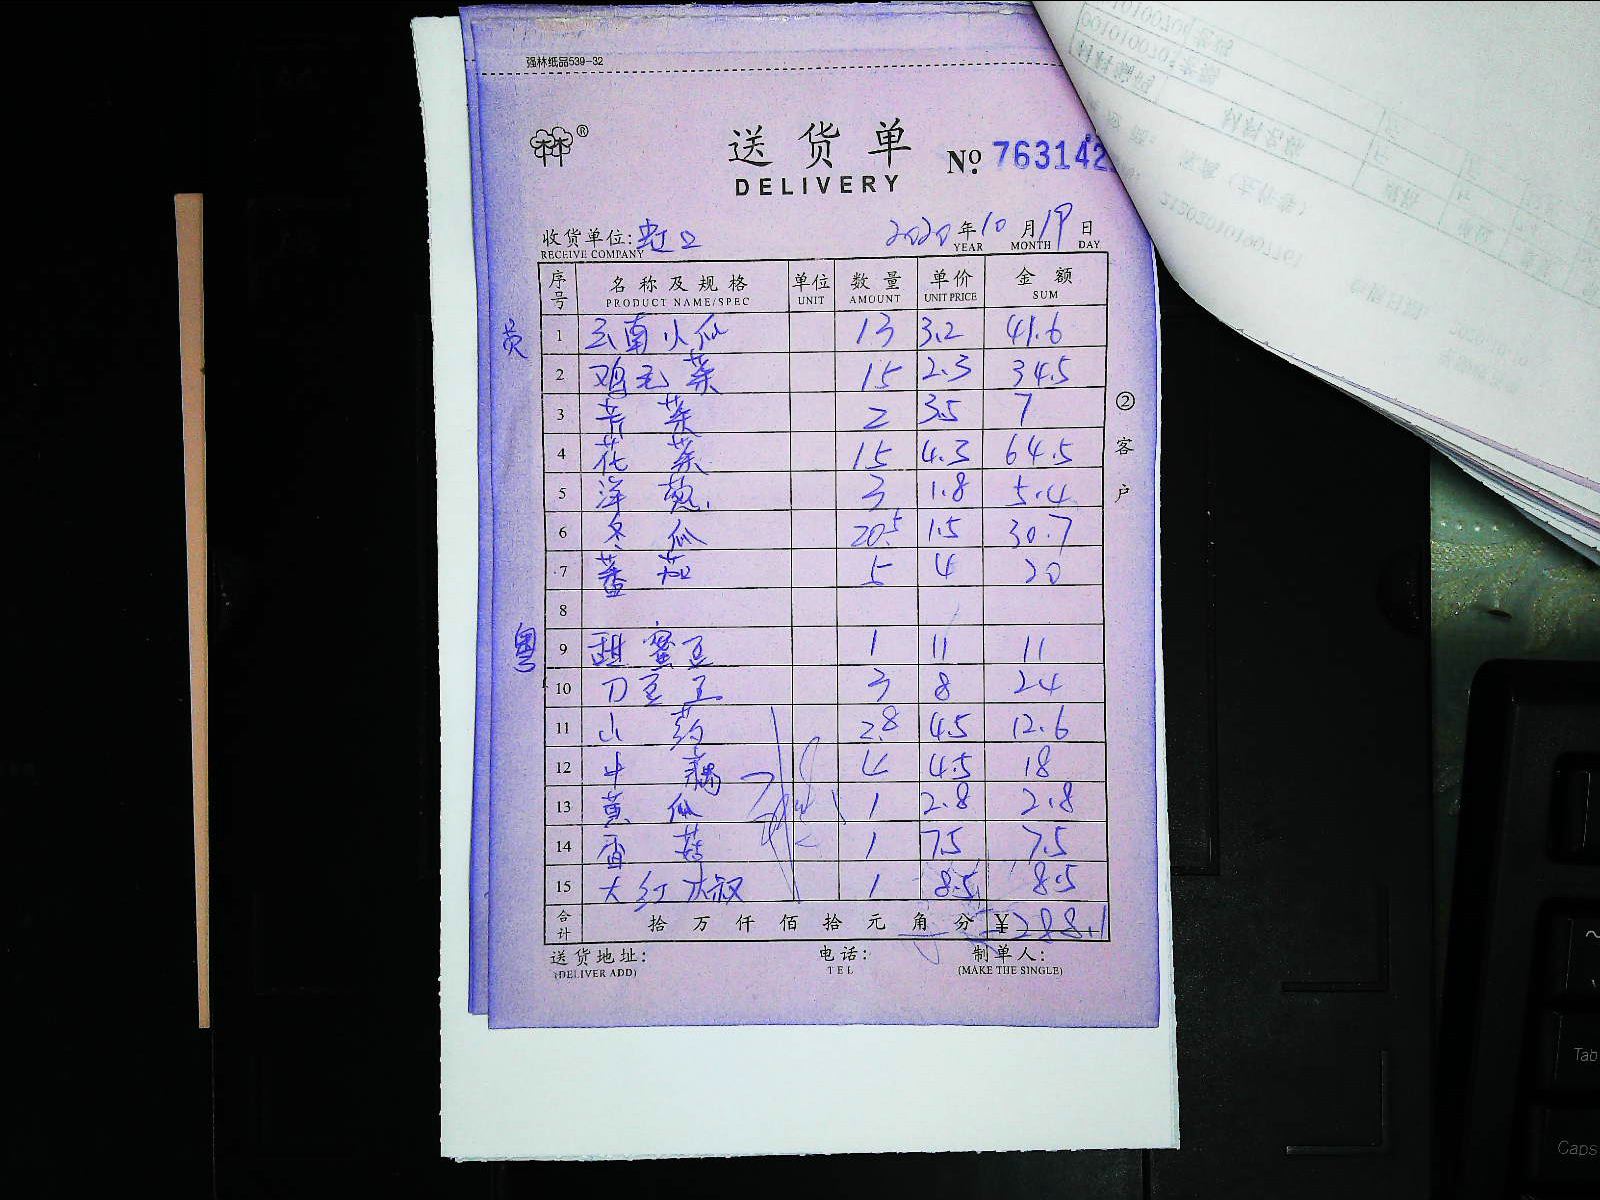 强林纸品539-32
林®
送货单 No. 763142
DELIVERY
收货单位: 2020年10月19日
RECEIVE COMPANY YEAR MONTH DAY
序号 名称及规格 单位 数量 单价 金额
PRODUCT NAME/SPEC UNIT AMOUNT UNIT PRICE SUM
1 云南小瓜 13 3.2 41.6
2 鸡毛菜 15 2.3 34.5
3 芥菜 2 3.5 7
4 花菜 15 4.3 64.5
5 洋葱 3 1.8 5.4
6 冬瓜 20.5 1.5 30.7
7 蕃茄 5 4 20
8
粤
9 甜蜜豆 1 11 11
10 刀豆王 3 8 24
11 山药 2.8 4.5 12.6
12 中藕 4 4.5 18
13 黄瓜 1 2.8 2.8
14 香菇 1 7.5 7.5
15 大红椒 1 8.5 8.5
合计 拾万仟佰拾元角分 ¥288.1
送货地址: 电话: 制单人:
(DELIVER ADD) TEL (MAKE THE SINGLE)
②客户
Tab
Caps